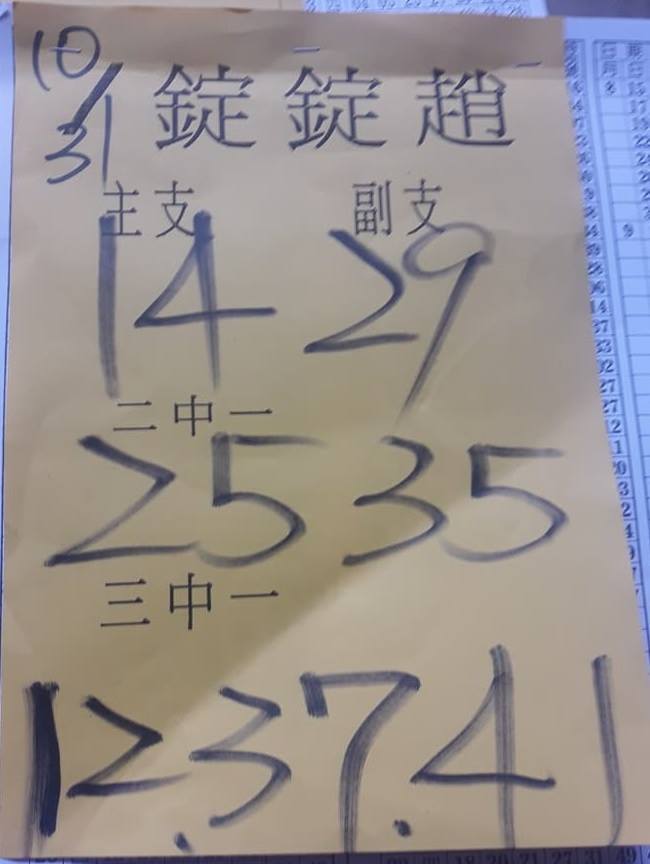 10/31 錠錠趙
主支 副支
14 29
二中一
25 35
三中一
12.37.41